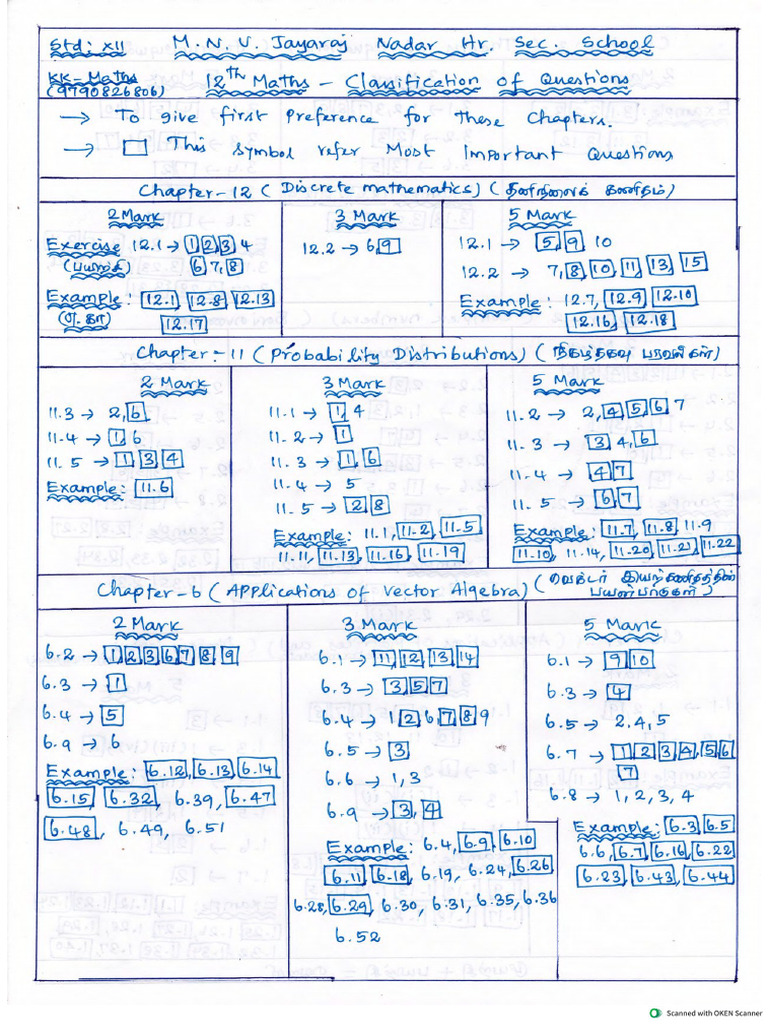 Std: XII M. N. U. Jayaraj Nadar Hr. Sec. School
KK-Maths 12th Maths - Classification of Questions
(9790826806)
→ To give first preference for these Chapters.
→ □ This symbol refer Most Important Questions
Chapter-12 (Discrete mathematics) (தனிநிலைக் கணிதம்)
2 Mark
Exercise 12.1 → 1, 2, 3, 4
(பயிற்சி) 6, 7, 8
Example: 12.1, 12.8, 12.13
(எ.கா) 12.17
3 Mark
12.2 → 6, 9
5 Mark
12.1 → 5, 9, 10
12.2 → 7, 8, 10, 11, 13, 15
Example: 12.7, 12.9, 12.10
12.16, 12.18
Chapter-11 (Probability Distributions) (நிகழ்தகவு பரவல்கள்)
2 Mark
11.3 → 2, 6
11.4 → 1, 6
11.5 → 1 3 4
Example: 11.6
3 Mark
11.1 → 1, 4
11.2 → 1
11.3 → 1, 6
11.4 → 5
11.5 → 2 8
Example: 11.1, 11.2, 11.5
11.11, 11.13, 11.16, 11.19
5 Mark
11.2 → 2, 4 5 6 7
11.3 → 3 4, 6
11.4 → 4 7
11.5 → 6, 7
Example: 11.7, 11.8, 11.9
11.10, 11.14, 11.20, 11.21, 11.22
Chapter-6 (Applications of Vector Algebra) (வெக்டர் இயற்கணிதத்தின்
பயன்பாடுகள்)
2 Mark
6.2 → 1 2 3 6 7 8, 9
6.3 → 1
6.4 → 5
6.9 → 6
Example: 6.12, 6.13, 6.14
6.15, 6.32, 6.39, 6.47
6.48, 6.49, 6.51
3 Mark
6.1 → 11, 12, 13, 14
6.3 → 3, 5, 7
6.4 → 1 2 6, 7, 8 9
6.5 → 3
6.6 → 1, 3
6.9 → 3, 4
Example: 6.4, 6.9, 6.10
6.11 6.18, 6.19, 6.24, 6.26
6.28, 6.29, 6.30, 6.31, 6.35, 6.36
6.52
5 Mark
6.1 → 9 10
6.3 → 4
6.5 → 2.4, 5
6.7 → 1 2 3 4, 5 6
7
6.8 → 1, 2, 3, 4
Example: 6.3, 6.5
6.6, 6.7, 6.16, 6.22
6.23, 6.43, 6.44
Scanned with OKEN Scanner